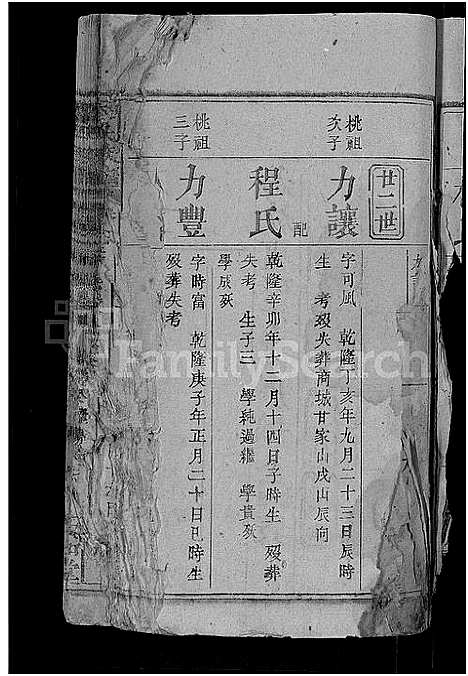 廿二世
桃祖
次子
力讓
字可風 乾隆丁亥年九月二十三日辰時
生 考歿失葬商城甘家山戌山辰向
配
程氏
乾隆辛卯年十二月十四日子時生 歿葬
失考 生子三 學純過繼 學貴歿
學成歿
桃祖
三子
力豐
字時富 乾隆庚子年正月二十日巳時生
歿葬失考
FamilySearch